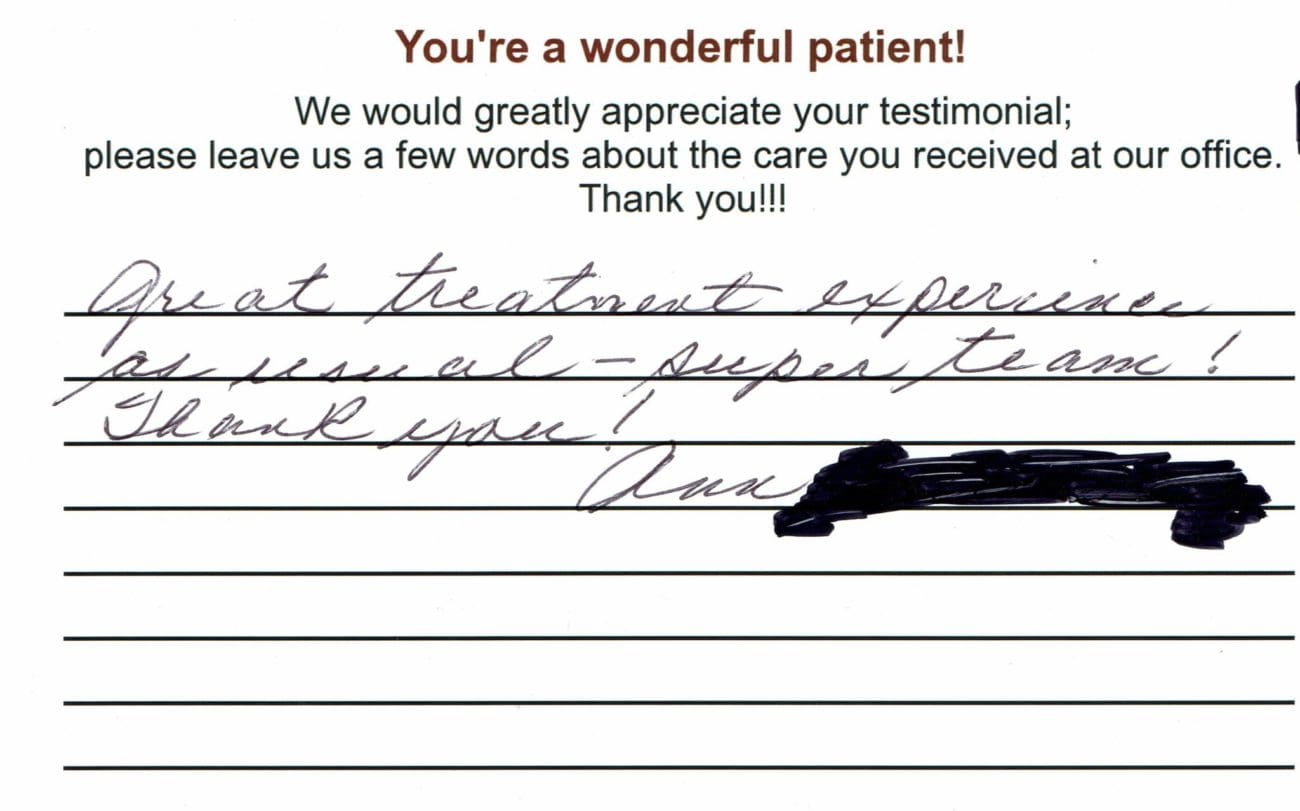 You're a wonderful patient!
We would greatly appreciate your testimonial;
please leave us a few words about the care you received at our office.
Thank you!!!
Great treatment experience
as usual – super team!
Thank you!
Ann